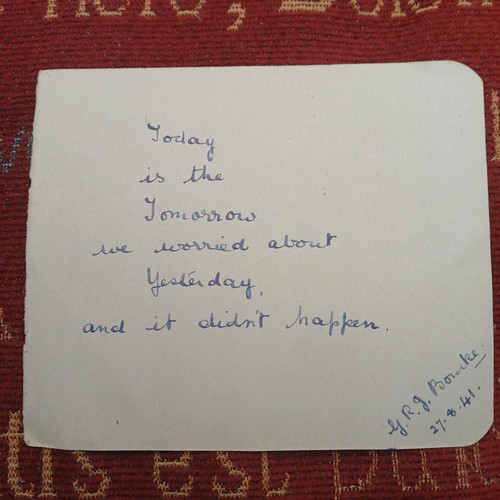 Today
is the
Tomorrow
we worried about
Yesterday,
and it didn't happen.
G. R. J. Bourke.
27.8.41.
est